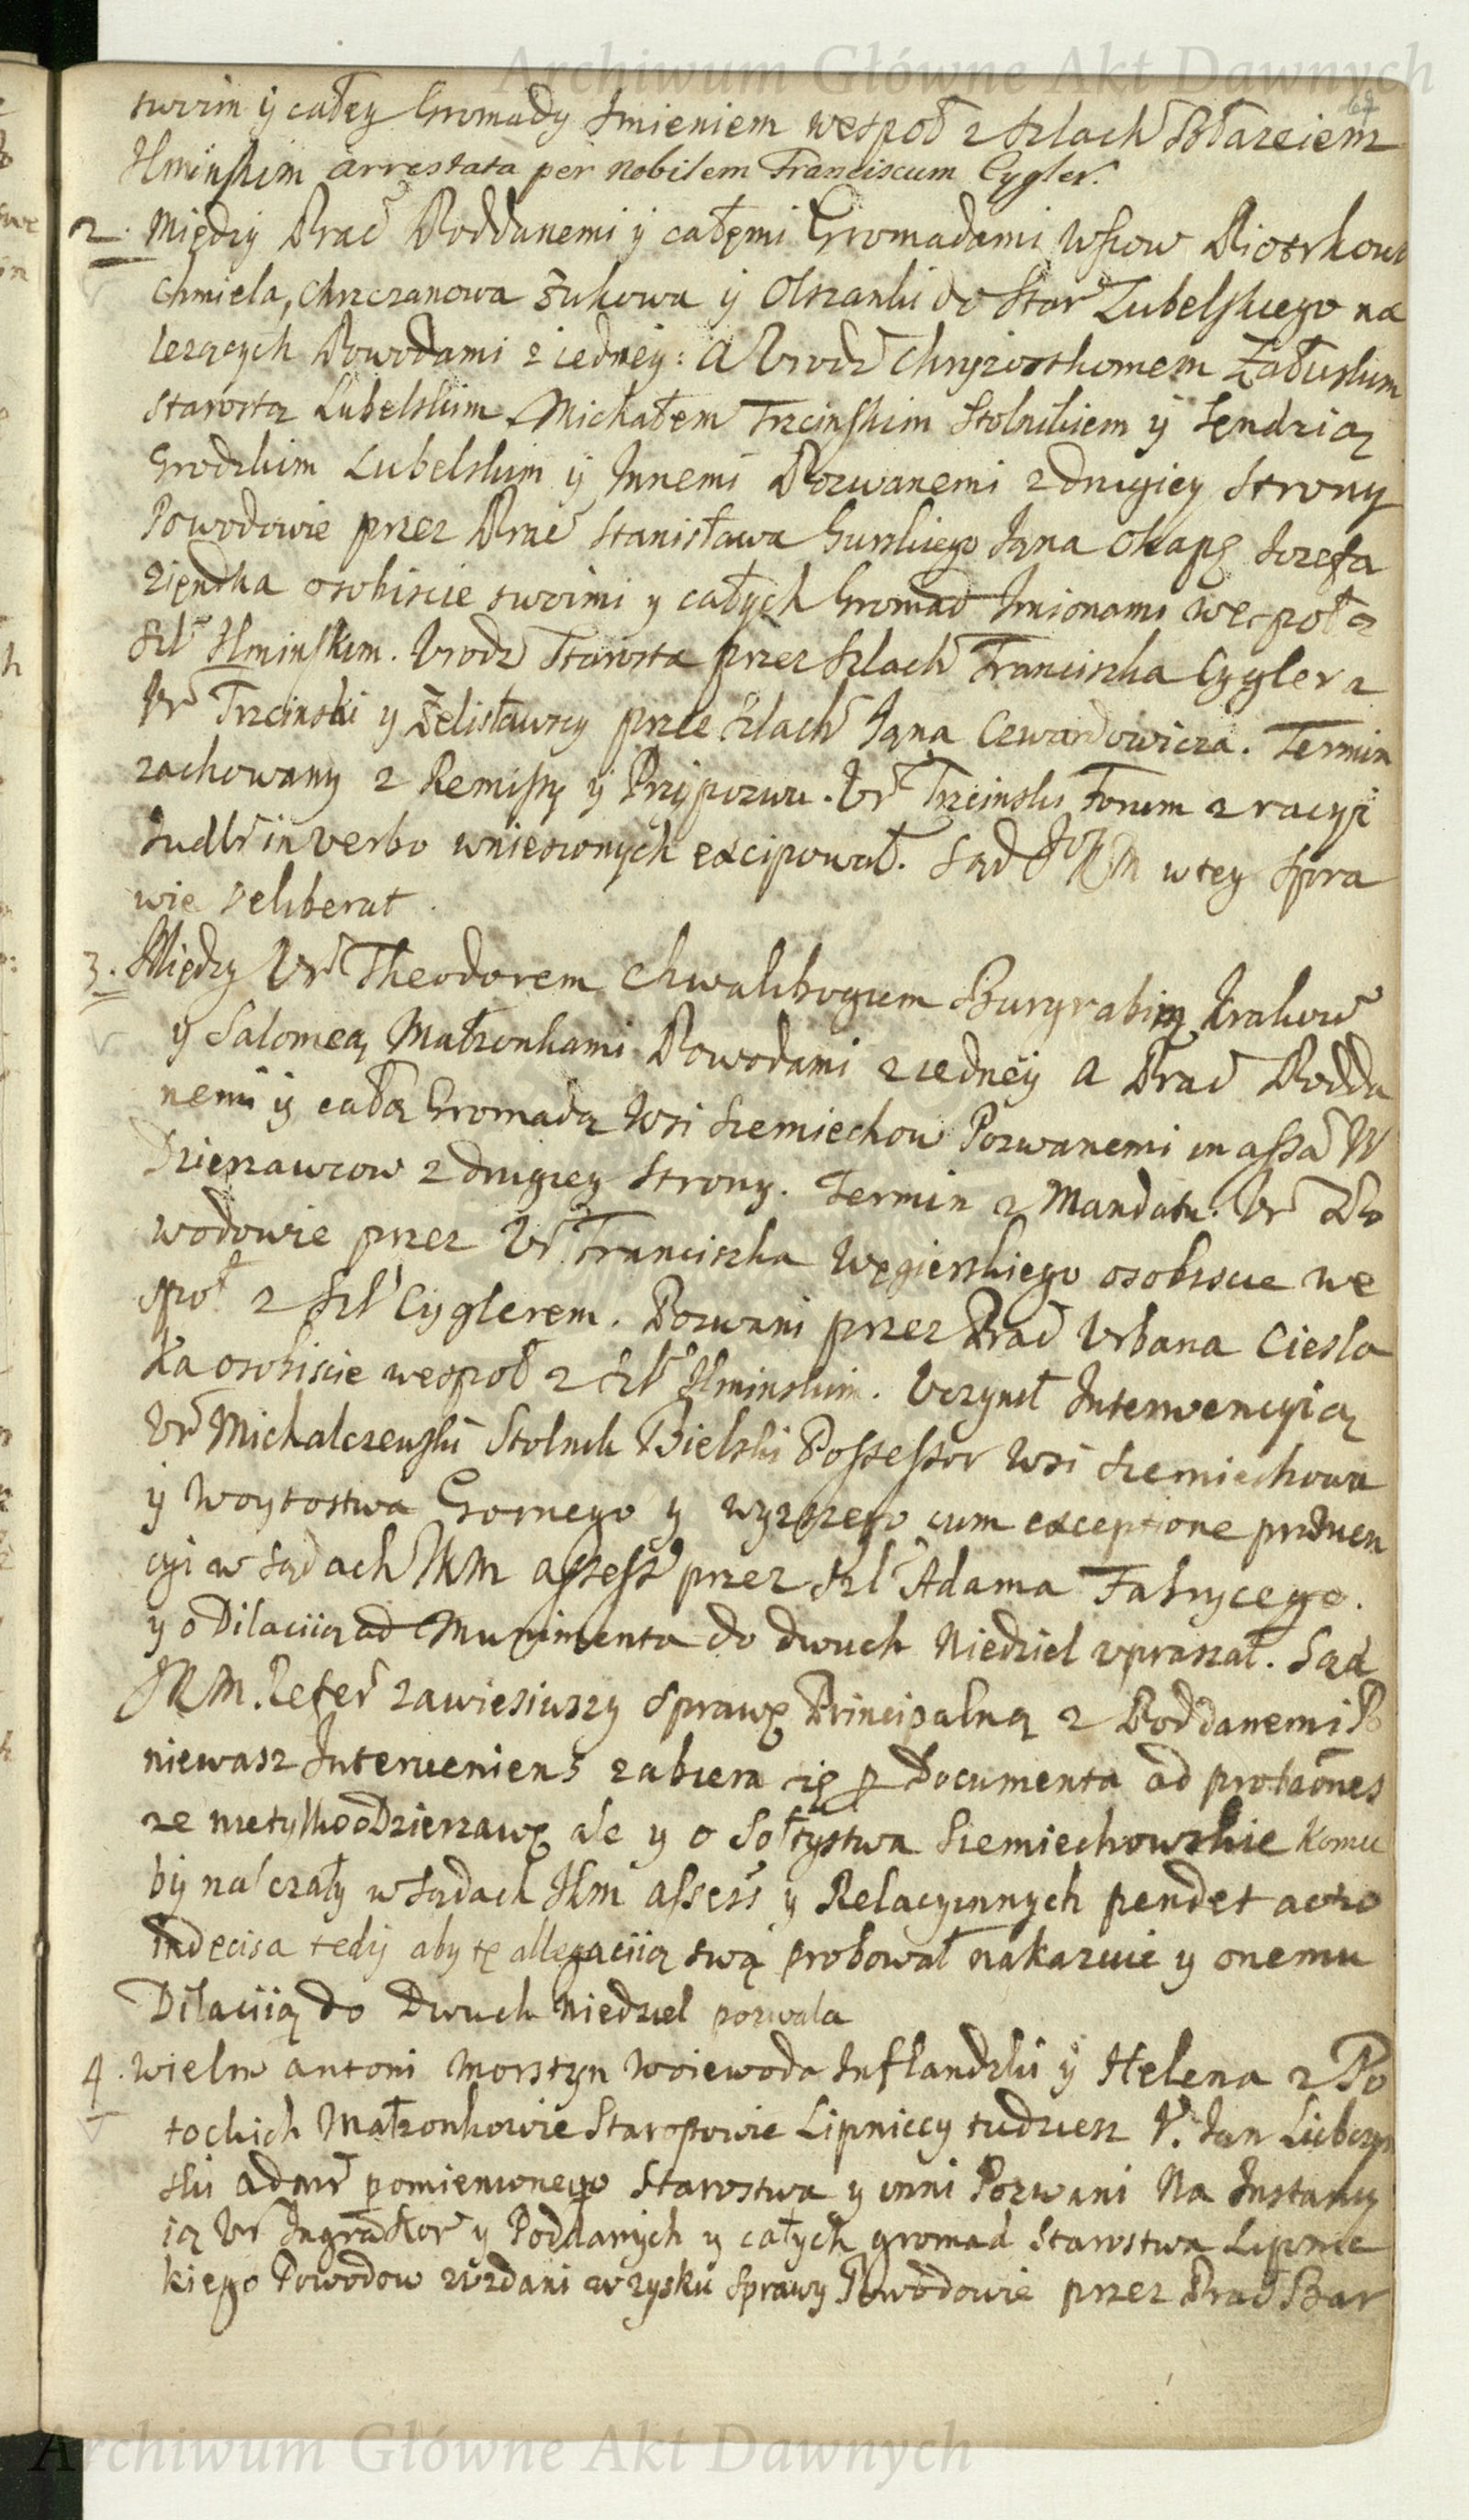 Archiwum Główne Akt Dawnych
swoim y całey Gromady Imieniem wespoł z Szlach Błazeiem
Ilminskim arrestata per nobilem Franciscum Cygler.
2. Między Prac Poddanemi y całęmi Gromadami Wsiow Piotrkow
Chmiela, Chrczanowa Żukowa y Olszanki do Star Lubelskiego na
lezących Powodami z iedney: a Urodz Chryzosthomem Załuskim
Starostą Lubelskim Michałem Trcinskim Stolnikiem y Sęndzią
Grodzkim Lubelskim y Innemi Pozwanemi z drugiey Strony
Powodowie przez Prac Stanisława Gurskiego Jąna Okapę Jozefa
Ziętka osobiscie swoimi y całych Gromad Imionami wespoł z
Szl Ilminskim. Urodz Starosta przez Szlach Franciszka Cyglera
Ur Trzcinski y Żelisławscy przez Szlach Jąna Cewardowicza. Termin
zachowany z Remissy y Przypozwu. Ur Trzcinski Forum z racyi
Iudl in verbo wniesionych excipował. Sąd JKM w tey Spra
wie deliberat.
3. Między Ur Theodorem Chwalibogiem Burgrabią Krakow
y Salomeą Małzonkami Powodami z iedney a Prac Podda
nemi y całą Gromadą Wsi Siemiechow Pozwanemi in assa W
Dzierzawcow z drugiey Strony. Termin z Mandatu. Ur Po
wodowie przez Ur Franciszka Węgierskiego osobiscie we
społ z Szl Cyglerem. Pozwani przez Prac Urbana Ciesla
ka osobiscie wespoł z Szl Ilminskim. Uczynił Interwencyią
Ur Michalczewski Stolnik Bielski Possessor Wsi Siemiechowa
y Woytostwa Gornego y wyzszego cum exceptione prewen
cyi w Sądach JKM Assess przez Szl Adama Fabrycego.
y o Dilaciią ad Munimenta do dwuch Niedziel upraszał. Sąd
JKM. Refer zawiesiwszy Sprawę Principalną z Poddanemi Po
niewasz Interueniens zabiera się z Documenta ad probaones
ze nietylko o Dzierzawę ale y o Sołtystwa Siemiechowskie komu
by nalezały w Sądach JKM assess y Relacyinnych pendet actio
indecisa tedy aby tę allegaciią swą probował nakazuie y onemu
Dilaciią do Dwuch Niedziel pozwala
4. Wielm Antoni Morsztyn Woiewoda Inflandzki y Helena z Po
tockich Małzonkowie Starostowie Lipniccy tudziesz U. Jan Liebczyn
ski admr pomienionego Starostwa y inni Pozwani Na Instancy
ią Ur Instigator y Poddanych y całych gromad Starostwa Lipnic
kiego Powodow wzdani w zysku Sprawy Powodowie przez Prac Bar
Archiwum Główne Akt Dawnych